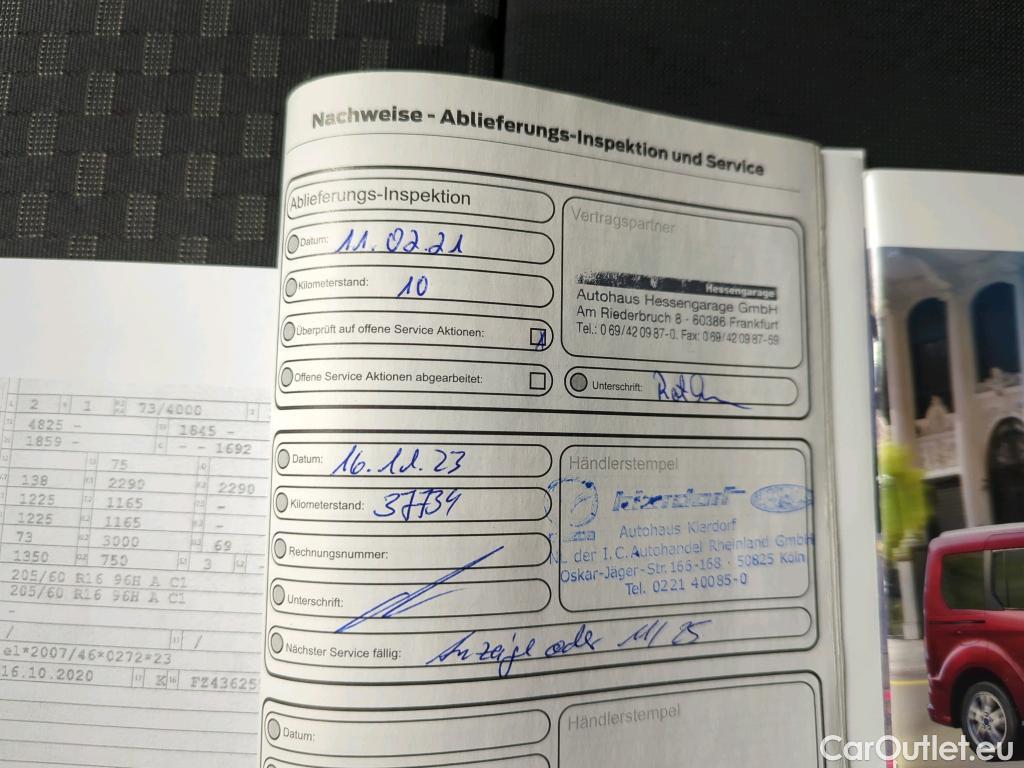 Nachweise - Ablieferungs-Inspektion und Service
Ablieferungs-Inspektion
Datum: 11.02.21
Kilometerstand: 10
Überprüft auf offene Service Aktionen:
Offene Service Aktionen abgearbeitet:
Vertragspartner
Hessengarage
Autohaus Hessengarage GmbH
Am Riederbruch 8 · 60386 Frankfurt
Tel.: 069/420987-0. Fax: 069/420987-69
Unterschrift:
Datum: 16.11.23
Kilometerstand: 37734
Rechnungsnummer:
Unterschrift:
Nächster Service fällig: Anzeige oder 11/25
Händlerstempel
kierdorf
Autohaus Kierdorf
NL der I.C. Autohandel Rheinland GmbH
Oskar-Jäger-Str. 166-168 · 50825 Köln
Tel. 0221 40085-0
Datum:
Händlerstempel
2 1 73/4000
4825 - 1845 -
1859 - - - 1692
75
138 2290 2290
1225 1165 -
1225 1165 -
73 3000 69
1350 750 3 -
205/60 R16 96H A C1
205/60 R16 96H A C1
-
/ /
e1*2007/46*0272*23
16.10.2020 K FZ43625
CarOutlet.eu